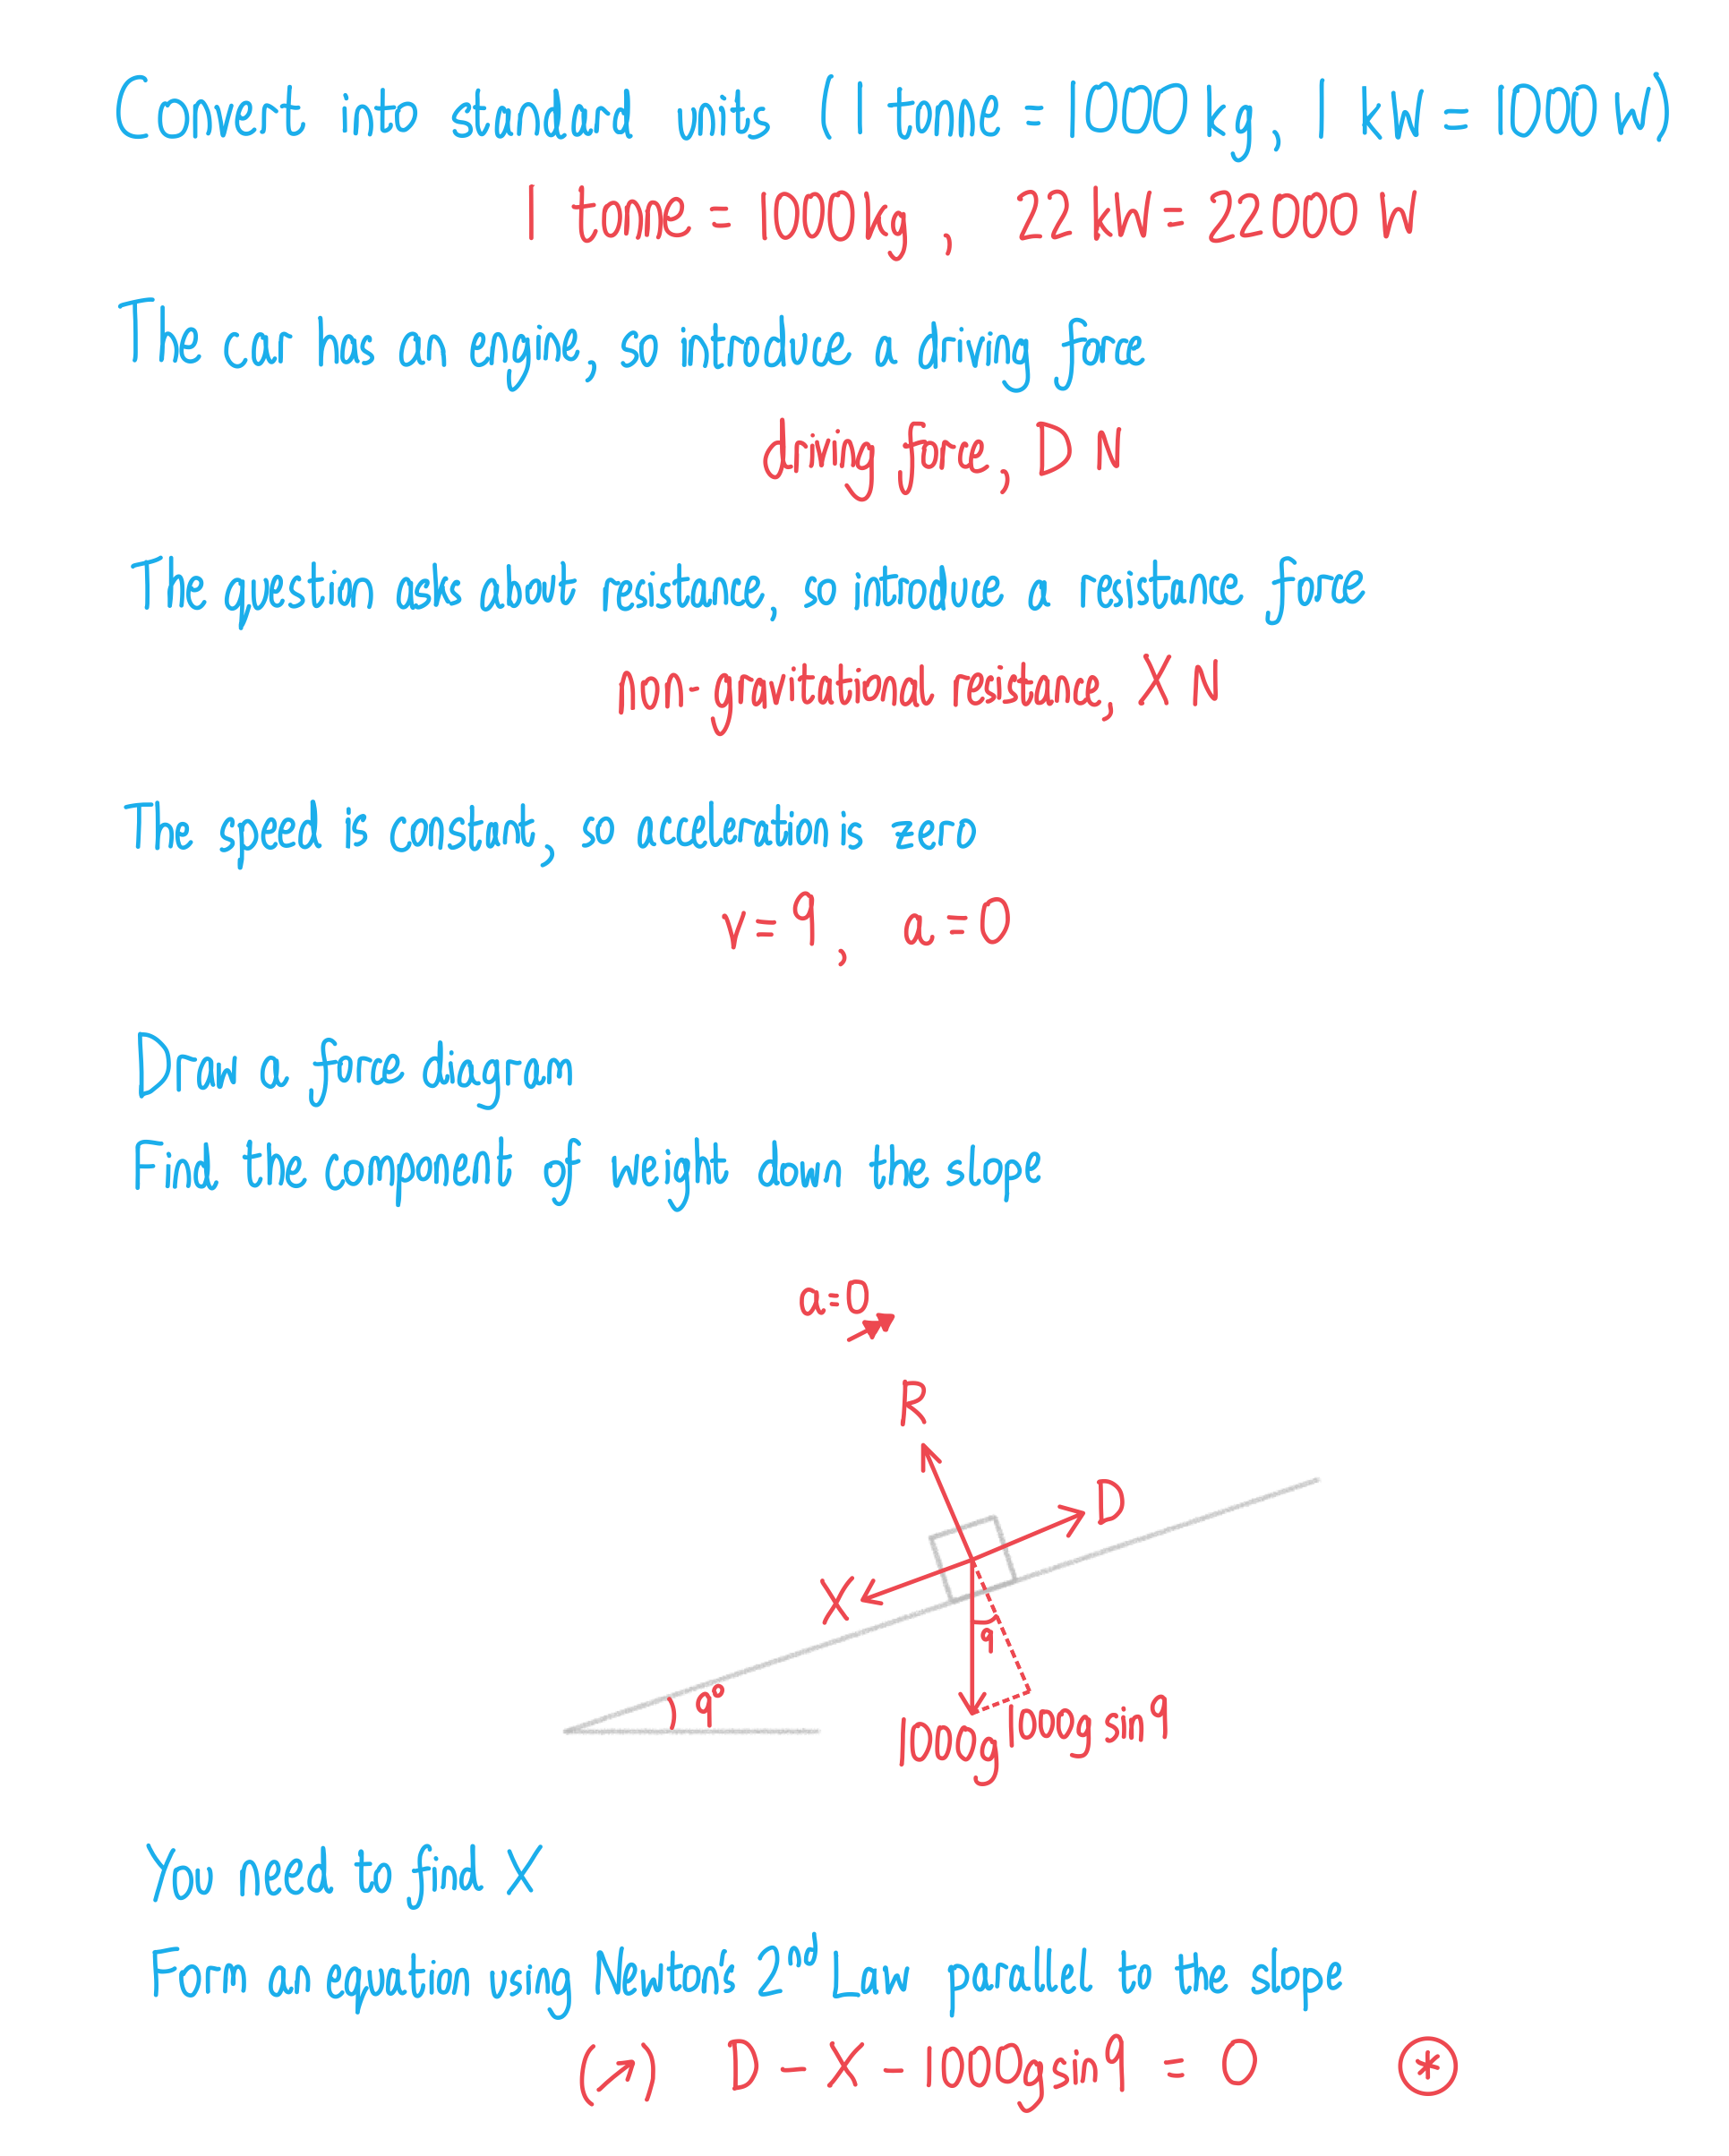 Convert into standard units (1 tonne = 1000 kg, 1 kW = 1000 W)
1 tonne = 1000kg, 22 kW = 22000 W
The car has an engine, so introduce a driving force
driving force, D N
The question asks about resistance, so introduce a resistance force
non-gravitational resistance, X N
The speed is constant, so acceleration is zero
v = 9, a = 0
Draw a force diagram
Find the component of weight down the slope
a=0
R
D
X
9
9°
1000g
1000g sin 9
You need to find X
Form an equation using Newton's 2nd Law parallel to the slope
(↗) D - X - 1000gsin9 = 0 ⊛